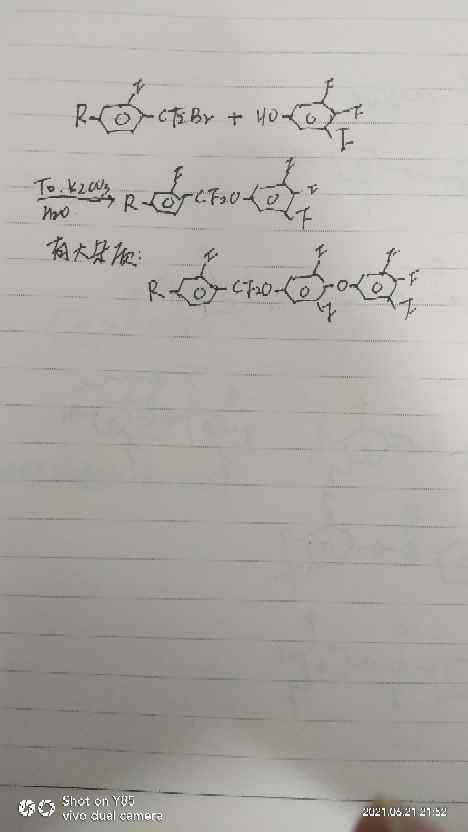 R- F -CF2Br + HO- F F F
T0. K2CO3
H2O
R- F -CF2O- F F F
有大杂质:
R- F -CF2O- F F -O- F F F
Shot on Y85
vivo dual camera
2021.06.21 21:52